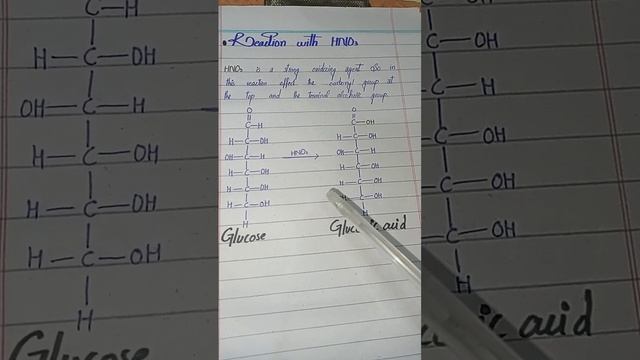 Reaction with HNO₃
HNO₃ is a strong oxidizing agent also in
this reaction effect the carbonyl group at
the top and the terminal alcoholic group.
O
C—H
H—C—OH
OH—C—H
H—C—OH
H—C—OH
H—C—OH
H
Glucose
HNO₃ →
O
C—OH
H—C—OH
OH—C—H
H—C—OH
H—C—OH
C—OH
H
acid
C—H
H—C—OH
OH—C—H
H—C—OH
H—C—OH
H—C—OH
H
Glucose
C—OH
C—H
C—OH
C—OH
C—OH
H
acid